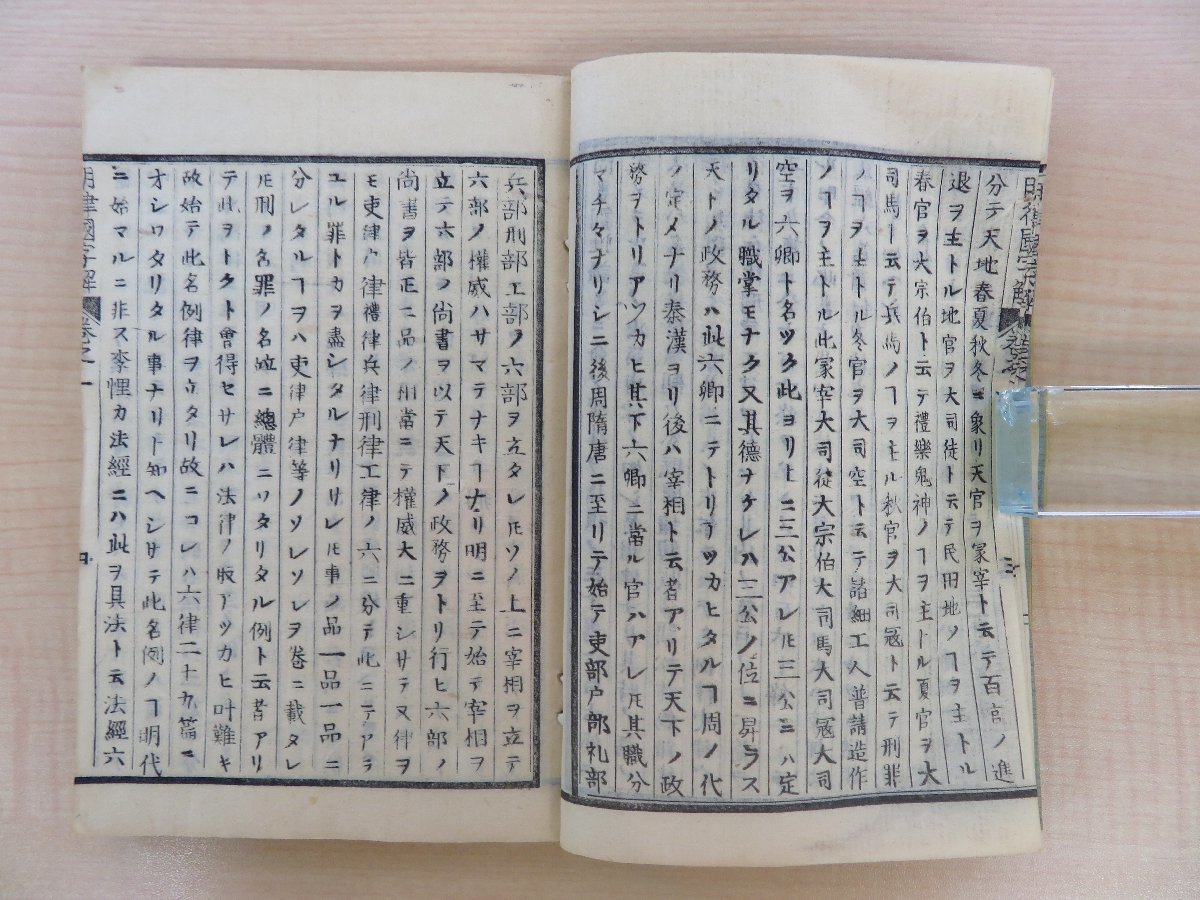 明律國字解 卷之一 三
分テ天地春夏秋冬ニ象リ天官ヲ冢宰ト云テ百官ノ進
退ヲ主トル地官ヲ大司徒ト云テ民田地ノヿヲ主トル
春官ヲ大宗伯ト云テ禮樂鬼神ノヿヲ主トル夏官ヲ大
司馬ト云テ兵馬ノヿヲ主ル秋官ヲ大司冦ト云テ刑罪
ノヿヲ主トル冬官ヲ大司空ト云テ諸細工人普請造作
ノヿヲ主トル此冢宰大司徒大宗伯大司馬大司冦大司
空ヲ六卿ト名ツク此ヨリ上ニ三公アレ𪜈三公ニハ定
リタル職掌モナク又其德ナケレハ三公ノ位ニ昇ラス
天下ノ政務ハ此六卿ニテトリアツカヒタルヿ周ノ代
ノ定メナリ秦漢ヨリ後ハ宰相ト云者アリテ天下ノ政
務ヲトリアツカヒ其下六卿ニ當ル官ハアレ𪜈其職分
マチ々ナリシニ後周隋唐ニ至リテ始テ吏部户部礼部
兵部刑部工部ノ六部ヲ立タレ𪜈ソノ上ニ宰相ヲ立テ
六部ノ權威ハサマテナキヿナリ明ニ至テ始テ宰相ヲ
立テ六部ノ尚書ヲ以テ天下ノ政務ヲトリ行ヒ六部ノ
尚書ヲ皆正二品ノ相當ニテ權威大ニ重シサテ又律ヲ
モ吏律户律禮律兵律刑律工律ノ六ニ分テ此ニテアラ
ユル罪トカヲ盡シタルナリサレ𪜈事ノ品一品一品ニ
分レタルヿヲハ吏律户律等ノソレソレヲ卷ニ載タレ
𪜈刑ノ名罪ノ名竝ニ總體ニワタリタル例ト云者アリ
テ此ヲトクト會得セサレハ法律ノ取アツカヒ叶難キ
故始テ此名例律ヲ立タリ故ニコレハ六律二十九篇ニ
オシワタリタル事ナリト知ヘシサテ此名例ノヿ明代
ニ始マルニ非ス李悝カ法經ニハ此ヲ具法ト云法經六
明律國字解 卷之一 四